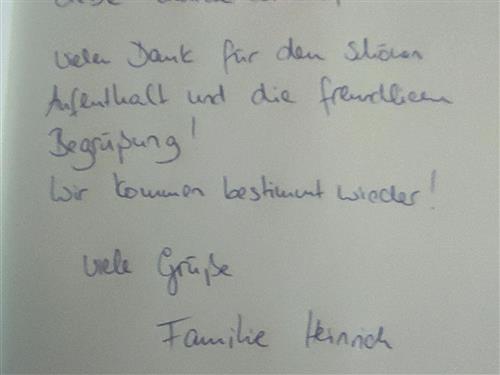 vielen Dank für den schönen
Aufenthalt und die freundlichen
Begrüßung!
Wir kommen bestimmt wieder!
viele Grüße
Familie Heinrich